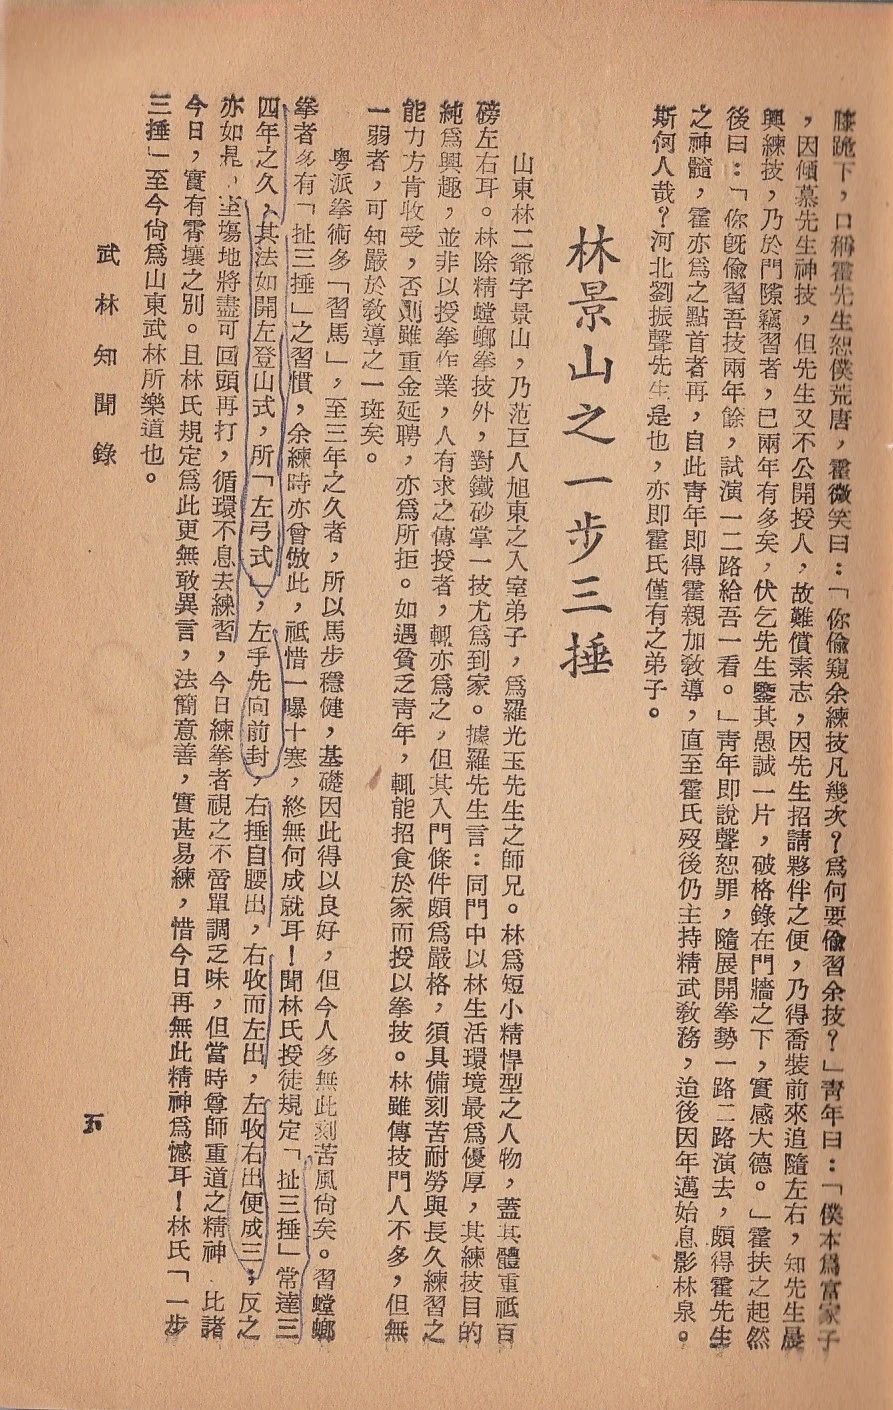 膝跪下，口稱霍先生恕僕荒唐，霍微笑曰：「你偸窺余練技凡幾次？爲何要偸習余技？」靑年曰：「僕本爲富家子
，因傾慕先生神技，但先生又不公開授人，故難償素志，因先生招請夥伴之便，乃得喬裝前來追隨左右，知先生晨
興練技，乃於門隙竊習者，已兩年有多矣，伏乞先生鑒其愚誠一片，破格錄在門牆之下，實感大德。」霍扶之起然
後曰：「你旣偸習吾技兩年餘，試演一二路給吾一看。」靑年即說聲恕罪，隨展開拳勢一路二路演去，頗得霍先生
之神髓，霍亦爲之點首者再，自此靑年即得霍親加敎導，直至霍氏歿後仍主持精武敎務，迨後因年邁始息影林泉。
斯何人哉？河北劉振聲先生是也，亦即霍氏僅有之弟子。
林景山之一步三捶
山東林二爺字景山，乃范巨人旭東之入室弟子，爲羅光玉先生之師兄。林爲短小精悍型之人物，蓋其體重祗百
磅左右耳。林除精螳螂拳技外，對鐵砂掌一技尤爲到家。據羅先生言：同門中以林生活環境最爲優厚，其練技目的
純爲興趣，並非以授拳作業，人有求之傳授者，輒亦爲之，但其入門條件頗爲嚴格，須具備刻苦耐勞與長久練習之
能力方肯收受，否則雖重金延聘，亦爲所拒。如遇貧乏靑年，輒能招食於家而授以拳技。林雖傳技門人不多，但無
一弱者，可知嚴於敎導之一斑矣。
粤派拳術多「習馬」，至三年之久者，所以馬步穩健，基礎因此得以良好，但今人多無此刻苦風尙矣。習螳螂
拳者多有「扯三捶」之習慣，余練時亦曾倣此，祗惜一曝十寒，終無何成就耳！聞林氏授徒規定「扯三捶」常達三
四年之久，其法如開左登山式，所「左弓式」，左手先向前封，右捶自腰出，右收而左出，左收右出便成三；反之
亦如是，至塲地將盡可回頭再打，循環不息去練習，今日練拳者視之不啻單調乏味，但當時尊師重道之精神，比諸
今日，實有霄壤之別。且林氏規定爲此更無敢異言，法簡意善，實甚易練，惜今日再無此精神爲憾耳！林氏「一步
三捶」至今尙爲山東武林所樂道也。
武林知聞錄
五